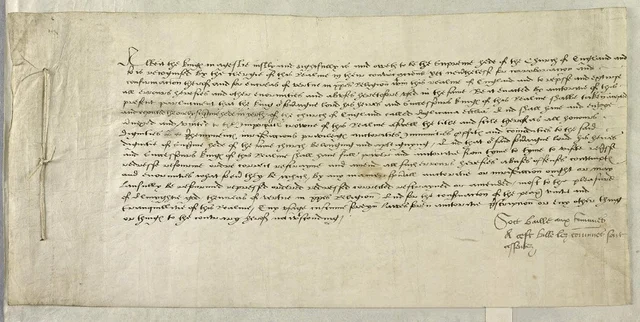 Albeit the kings mageste iustly and rightfully is and oweth to be the supreme hede of the Church of England and
so is recognised by the clergie of this Realme in their convocacions yet nevertheles for corroboracion and
confirmacion therof and for encreas of vertue in xpes Religion within this realme of England and to repress and extirpe
all errours heresies and other enormities and abuses heretofore used in the same Be it enacted by auctorite of this
present parliament that the king our Soveraigne lord his heires and successours kings of this Realme shalbe taken accepted
and reputed the only supreme hede in erth of the church of England called Anglicana Ecclesia And shall have and enioye
annexed and united to the imperiall crowne of this Realme aswell the title and stile therof as all honours
Dignities preemynences iurisdiccions privileges auctorites ymmunities profits and comodities to the said
dignitie of supreme hede of the same church belonging and apperteyning And that our said Soveraigne lord his heires
and successours kings of this Realme shall have full power and auctorite from tyme to tyme to visite represse
redresse reforme ordre correct restrayne and amende all such errours heresies abuses offenses contempts
and enormities what soever they be which by any maner spirituall auctorite or iurisdiccion ought or may
lawfully be reformed repressed ordered redressed corrected restrayned or amended most to the pleasure
of almyghtie god thencreas of vertue in xpes Religion And for the conservacion of the peax unite and
tranquillitie of this Realme Any usage custume foreyn lawes foreyn auctorite prescripcion or eny other thing
or things to the contrary hereof notwithstonding
Soit baille aux communes
A cest bille les communes sont
assentez